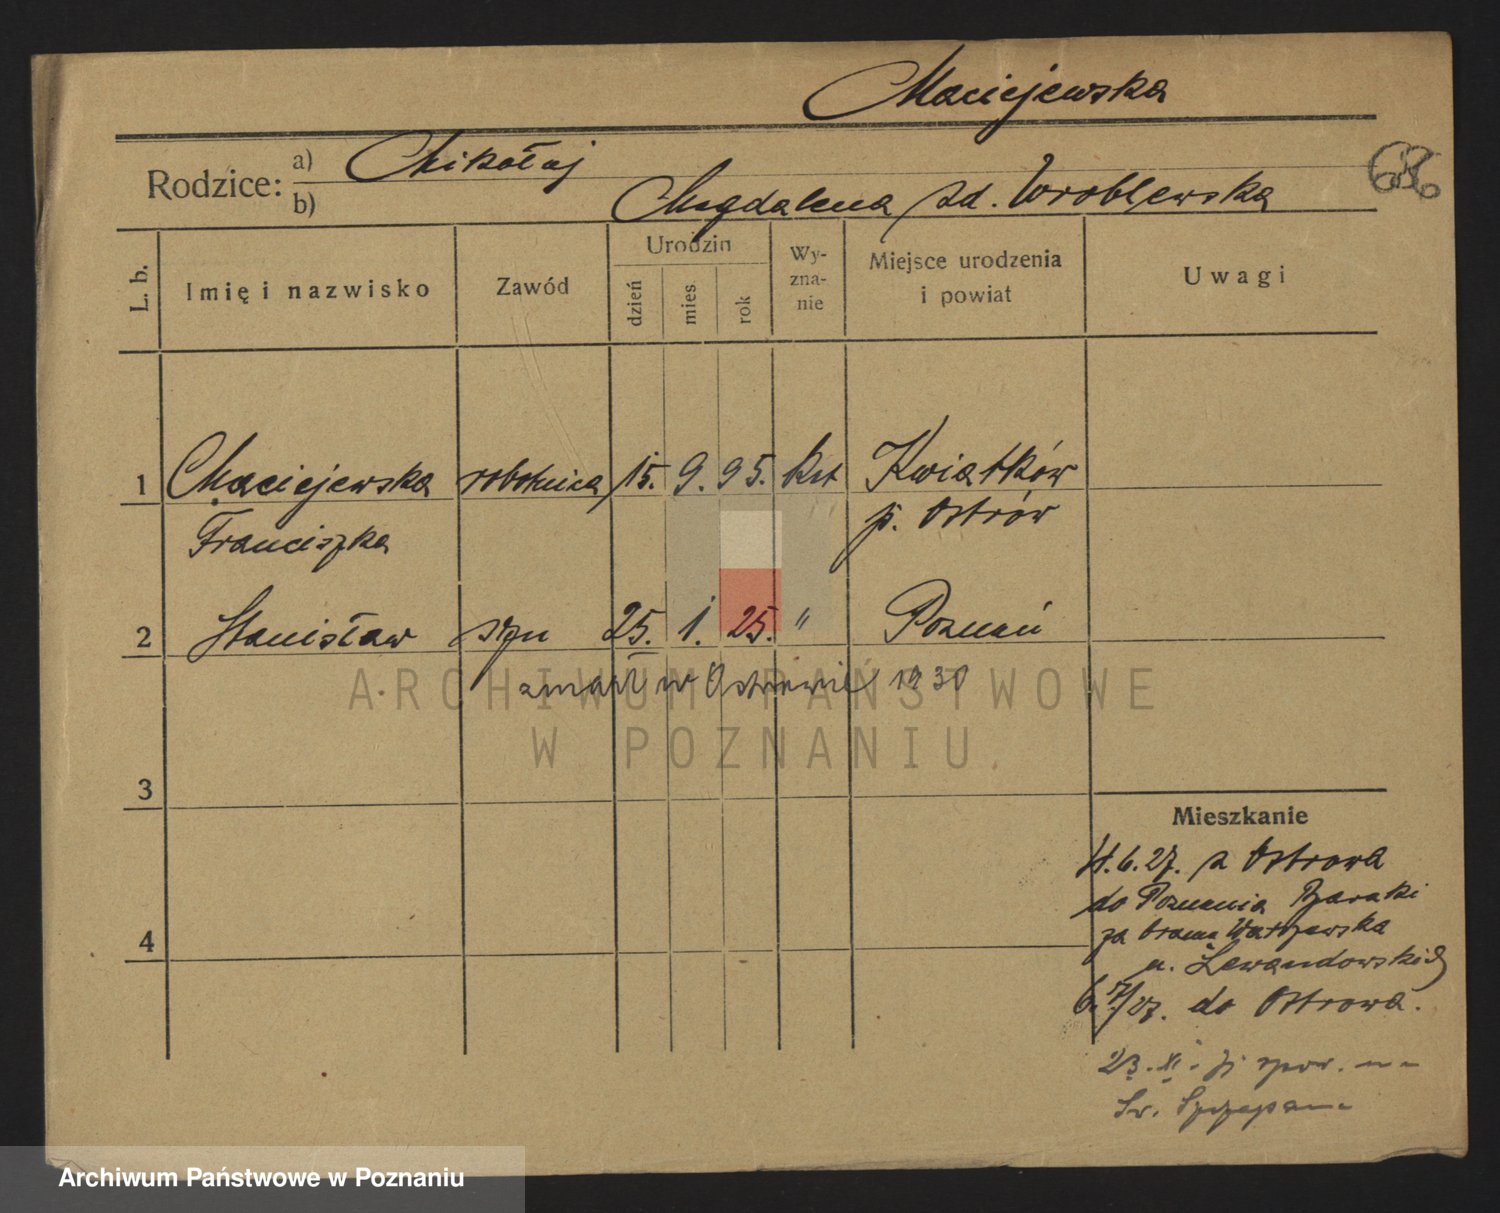 Maciejewska
Rodzice:
a) Mikołaj
b) Magdalena zd. Wroblewska
L. b.
Imię i nazwisko
Zawód
Urodzin
dzień
mies
rok
Wy-
zna-
nie
Miejsce urodzenia
i powiat
Uwagi
1 Maciejewska robotnica 15. 9. 95. kat Kwiatków
Franciszka p. Ostrów
2 Stanisław syn 25. 1. 25. " Poznań
zmarł w Ostrowie 1930
ARCHIWUM PAŃSTWOWE
W POZNANIU.
3
4
Mieszkanie
4. 6. 27. z Ostrowa
do Poznania Baraki
za bramą Warszawska
u. Lewandowskiej
6. 7/27. do Ostrowa.
23. XI.
Św. Szczepana
Archiwum Państwowe w Poznaniu